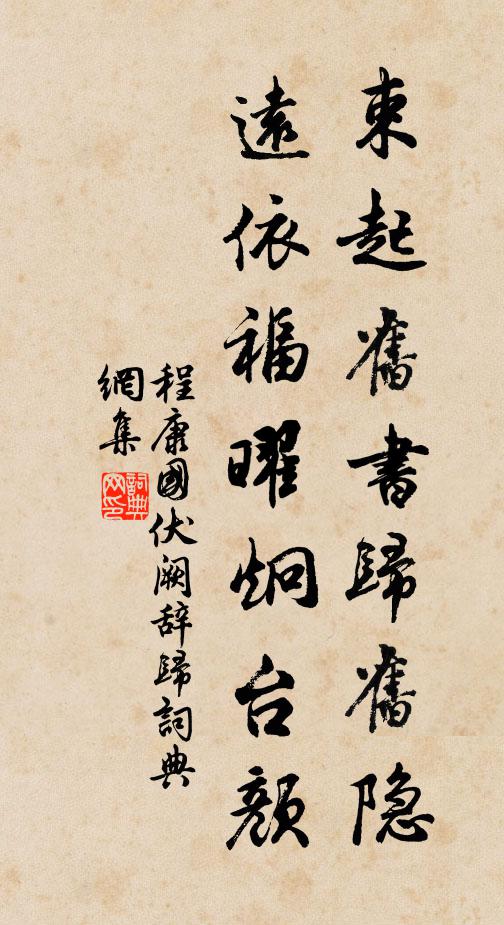 束起舊書歸舊隐
遠依福曜炯台顏
程康國伏闕辞歸詞典
網集
詞典
网印